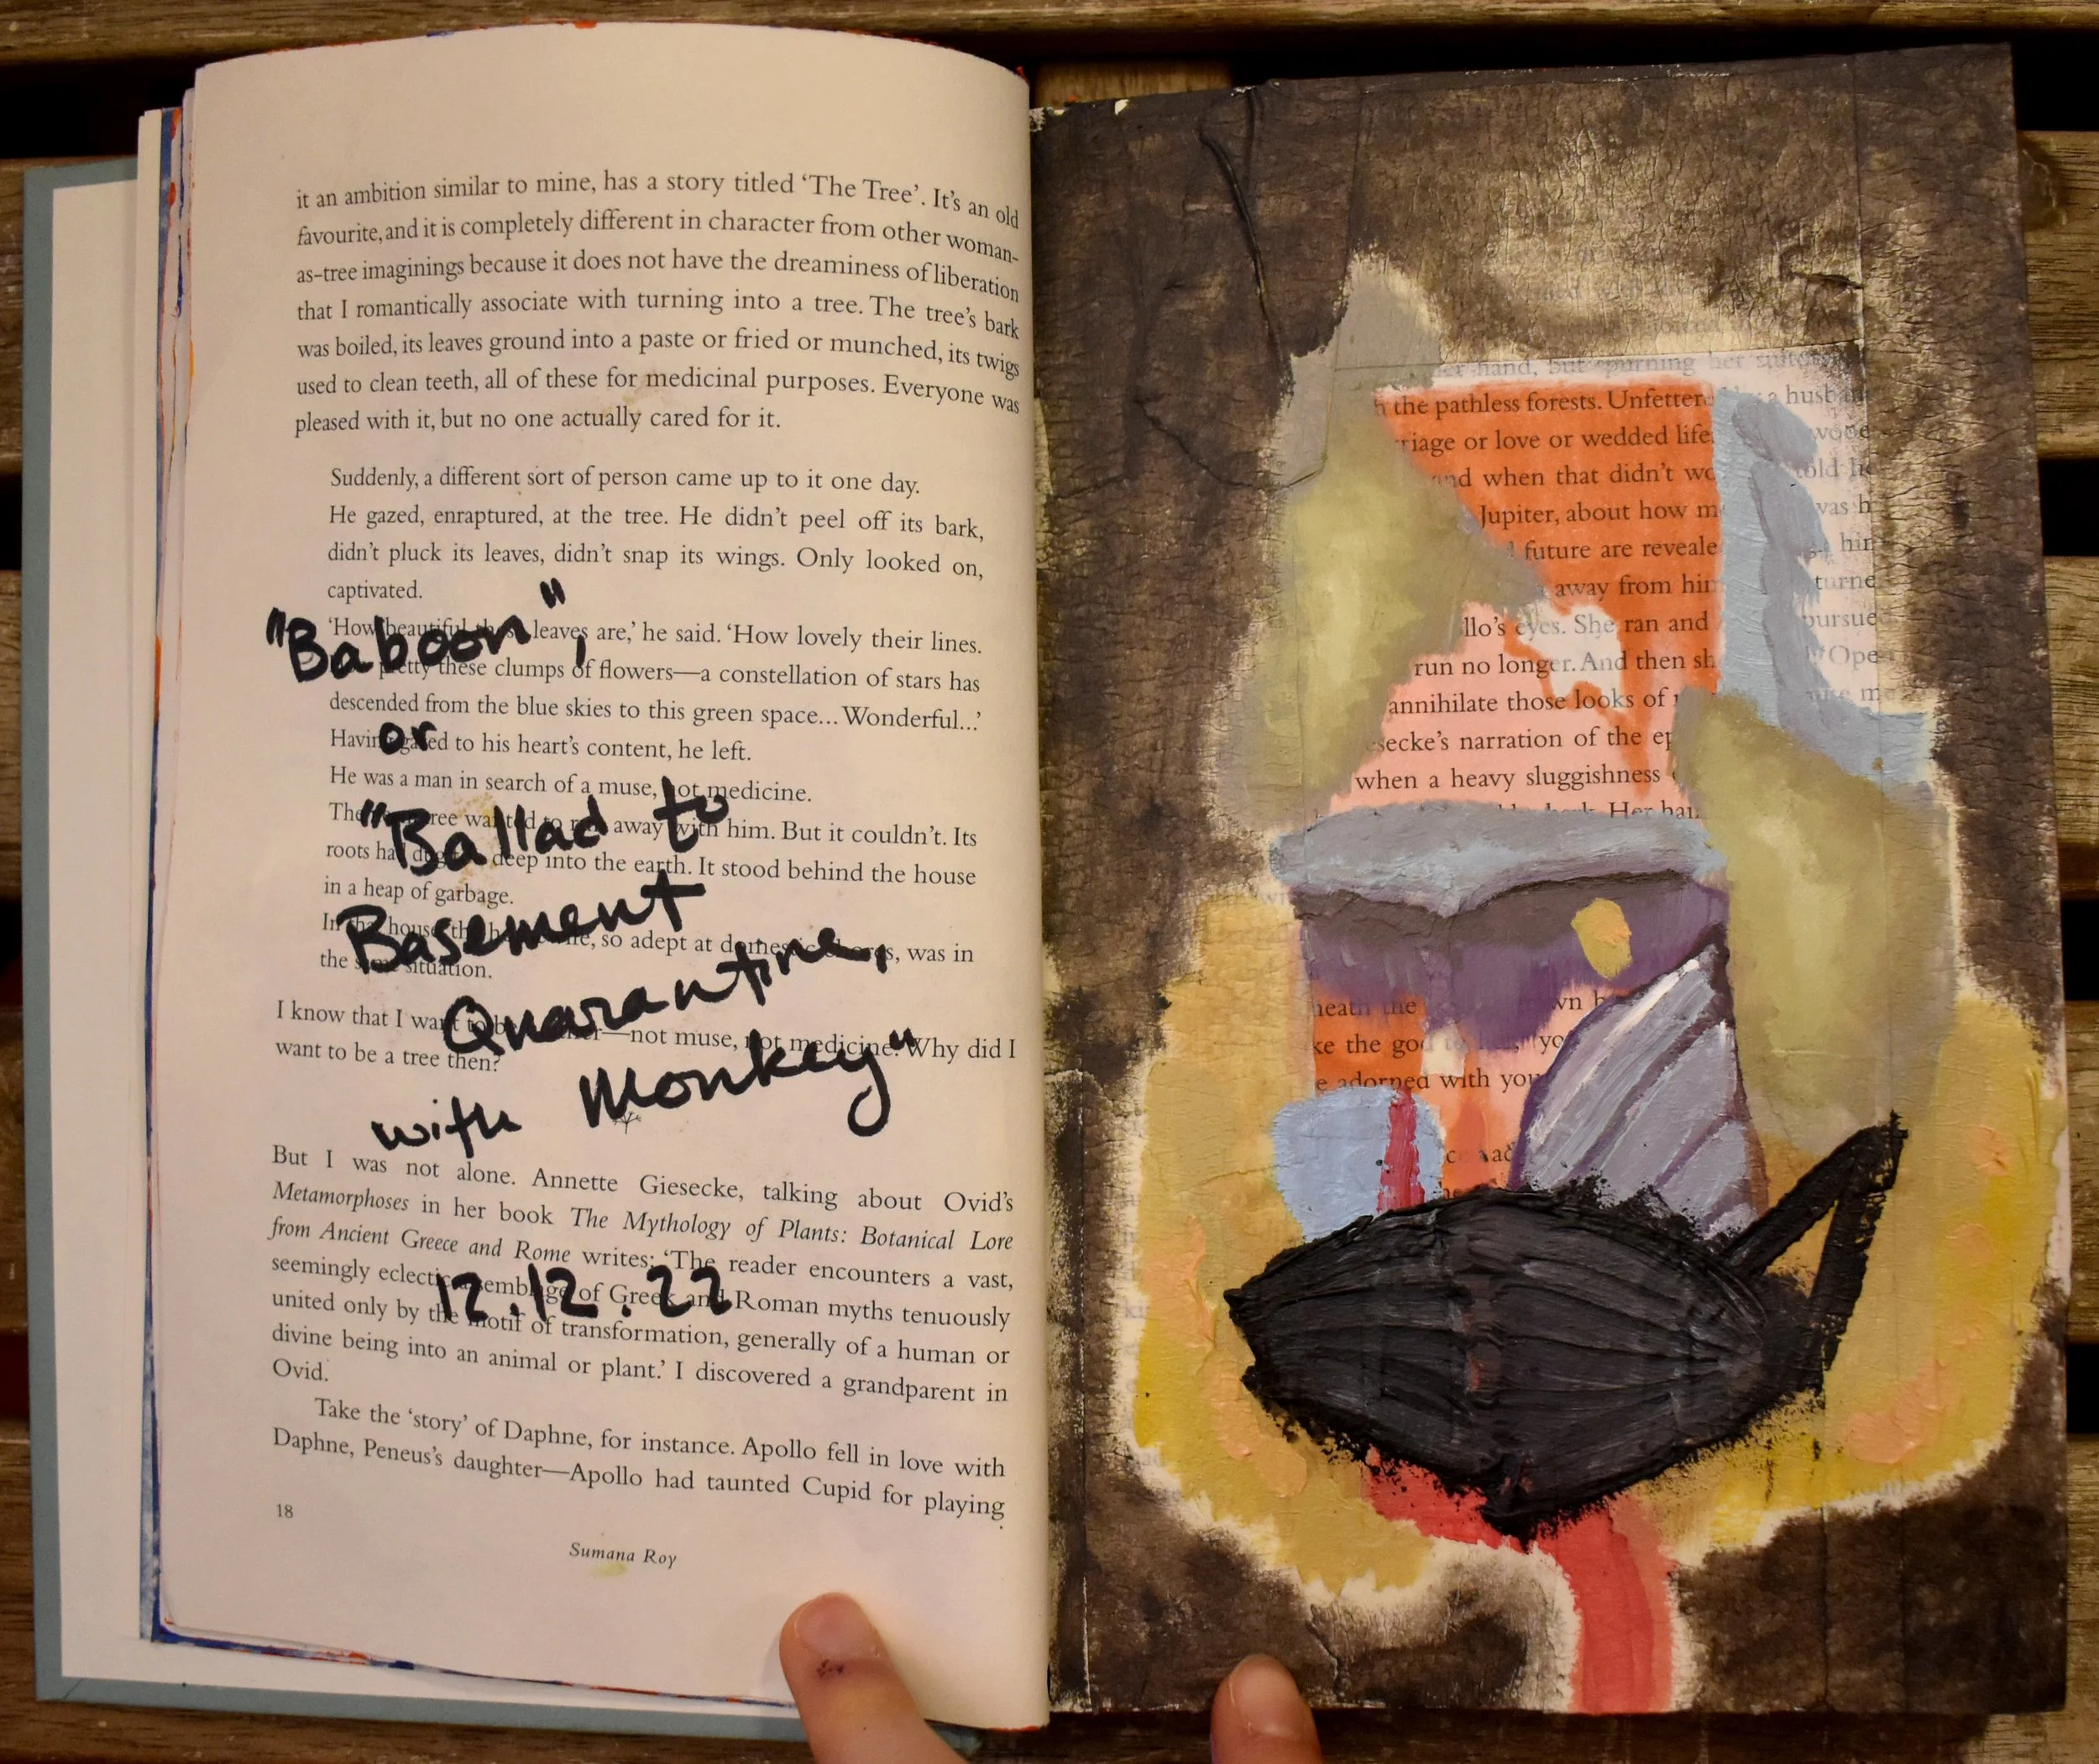 it an ambition similar to mine, has a story titled ‘The Tree’. It’s an old
favourite, and it is completely different in character from other woman-
as-tree imaginings because it does not have the dreaminess of liberation
that I romantically associate with turning into a tree. The tree’s bark
was boiled, its leaves ground into a paste or fried or munched, its twigs
used to clean teeth, all of these for medicinal purposes. Everyone was
pleased with it, but no one actually cared for it.
Suddenly, a different sort of person came up to it one day.
He gazed, enraptured, at the tree. He didn’t peel off its bark,
didn’t pluck its leaves, didn’t snap its wings. Only looked on,
captivated.
‘How beautiful these leaves are,’ he said. ‘How lovely their lines.
"Baboon",
pretty these clumps of flowers—a constellation of stars has
descended from the blue skies to this green space... Wonderful...’
or
Having gazed to his heart’s content, he left.
He was a man in search of a muse, not medicine.
"Ballad to
The tree wanted to run away with him. But it couldn’t. Its
roots had deep into the earth. It stood behind the house
in a heap of garbage.
Basement
In the house, so adept at domestic, was in
the same situation.
Quarantine,
I know that I want to be —not muse, not medicine. Why did I
want to be a tree then?
with Monkey"
But I was not alone. Annette Giesecke, talking about Ovid’s
Metamorphoses in her book The Mythology of Plants: Botanical Lore
from Ancient Greece and Rome writes: ‘The reader encounters a vast,
seemingly eclectic assemblage of Greek and Roman myths tenuously
12.12.22
united only by the motif of transformation, generally of a human or
divine being into an animal or plant.’ I discovered a grandparent in
Ovid.
Take the ‘story’ of Daphne, for instance. Apollo fell in love with
Daphne, Peneus’s daughter—Apollo had taunted Cupid for playing
18
Sumana Roy
hand, but spurning her
the pathless forests. Unfettered a
or love or wedded life
and when that didn’t told
Jupiter, about how was
future are him
away from him
eyes. She ran and
run no longer. And then
annihilate those looks of
narration of the
when a heavy sluggishness
bark. Her
the
the god
adorned with